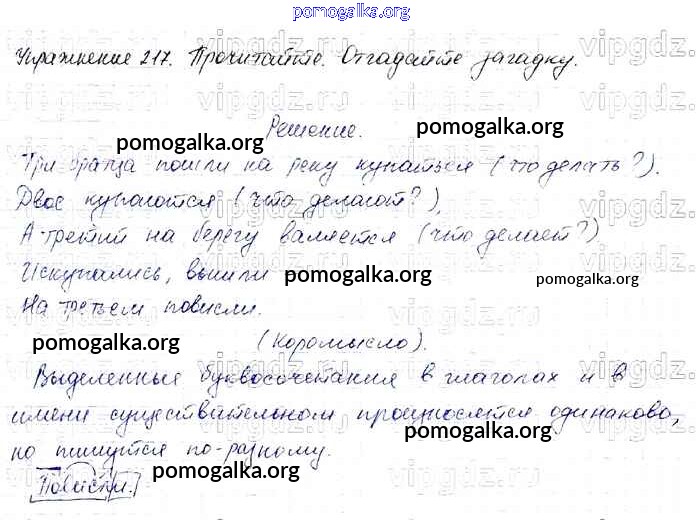 pomogalka.org
Упражнение 217. Прочитайте. Отгадайте загадку.
Решение.
pomogalka.org pomogalka.org
Три братца пошли на реку купаться (что делать?).
Двое купаются (что делают?),
А третий на берегу валяется (что делает?)
Искупались, вышли pomogalka.org pomogalka.org
На третьем повисли.
pomogalka.org (Коромысло).
Выделенные буквосочетания в глаголах и в
имени существительном произносятся одинаково,
pomogalka.org
но пишутся по-разному.
pomogalka.org
Повисли.
vipgdz.ru